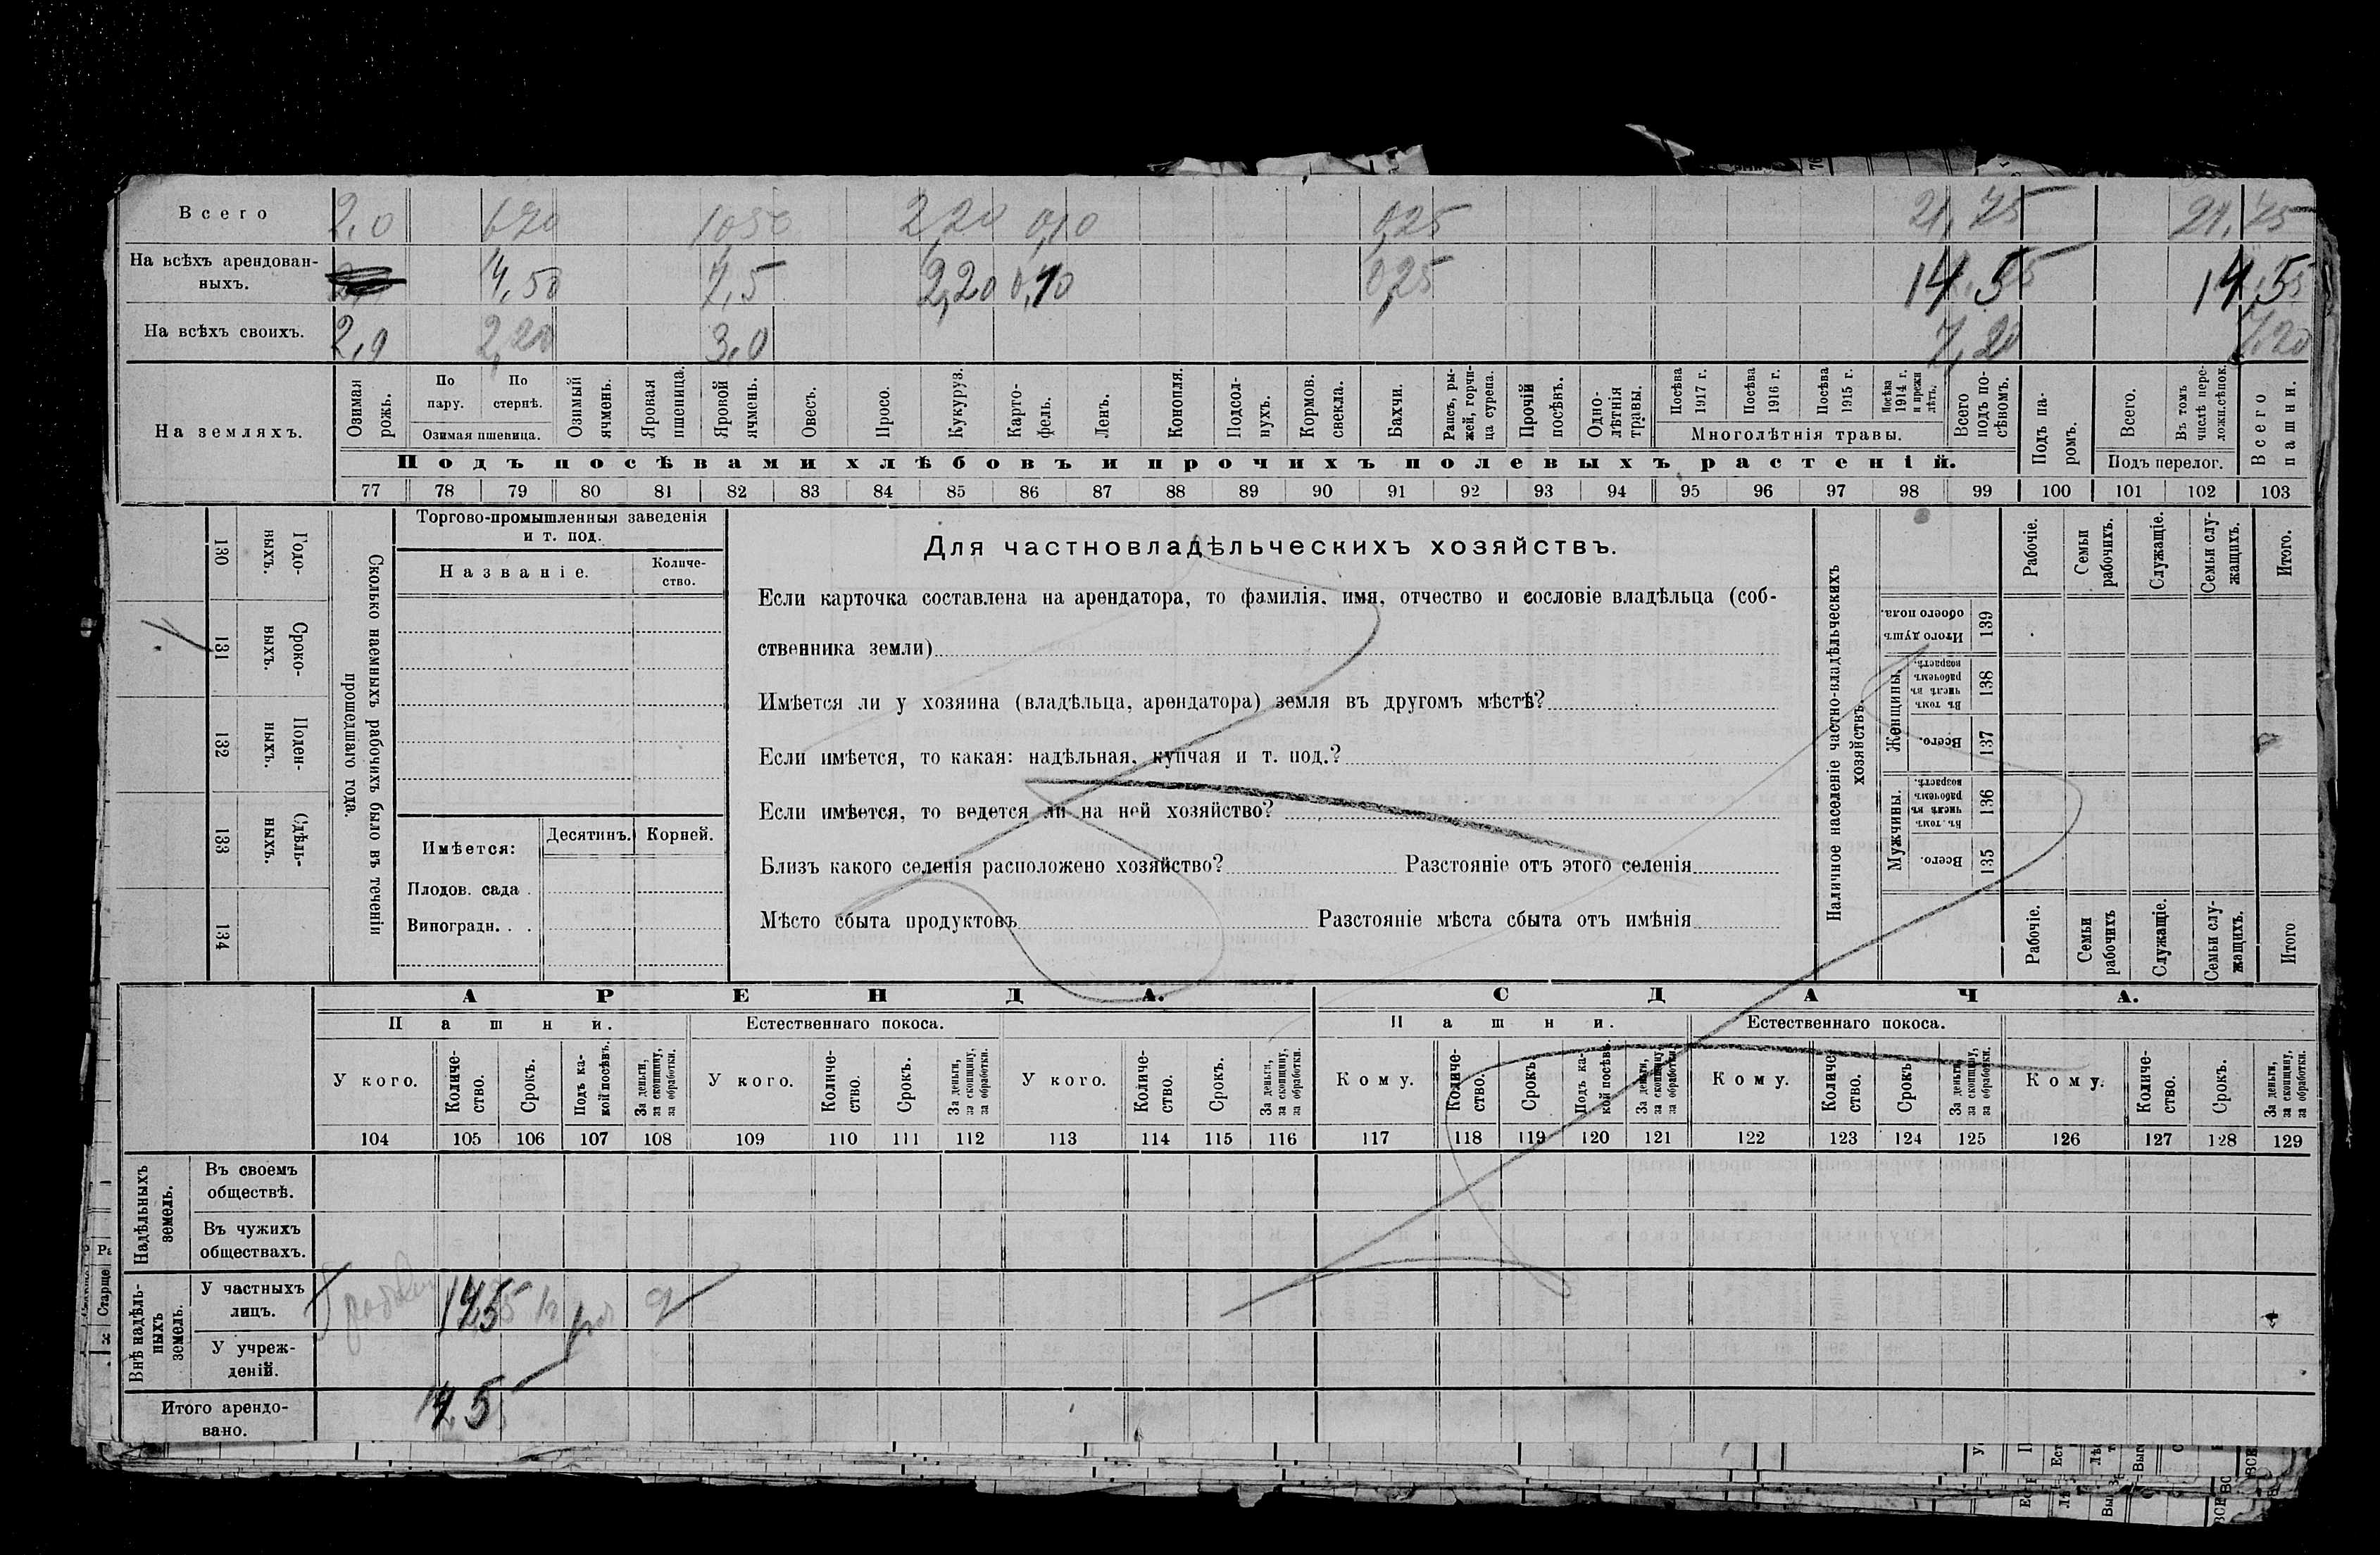 Всего 2,0 6,70 10,50 2,20 0,10 0,25 21,75 21,75
На всѣхъ арендован-
ныхъ. 4,50 7,5 2,20 0,10 0,25 14,55 14,55
На всѣхъ своихъ. 2,0 2,20 3,0 7,20 7,20
На земляхъ.
Озимая рожь.
По пару.
По стернѣ.
Озимая пшеница.
Озимый ячмень.
Яровая пшеница.
Яровой ячмень.
Овесъ.
Просо.
Кукуруз.
Карто-
фель.
Ленъ.
Конопля.
Подсол-
нухъ.
Кормов.
свекла.
Бахчи.
Рапсъ, ры-
жей, горчи-
ца сурепа.
Прочій
посѣвъ.
Одно-
лѣтнія
травы.
Посѣва
1917 г.
Посѣва
1916 г.
Посѣва
1915 г.
Посѣва
1914 г.
и прежн
лѣтъ.
Многолѣтнія травы.
Всего
подъ по-
сѣвомъ.
Подъ па-
ромъ.
Всего.
Въ томъ
числѣ пере-
ложн.сѣнок.
Подъ перелог.
Всего
пашни.
Подъ посѣвами хлѣбовъ и прочихъ полевыхъ растеній.
77 78 79 80 81 82 83 84 85 86 87 88 89 90 91 92 93 94 95 96 97 98 99 100 101 102 103
130 Годо-
ныхъ.
131 Сроко-
ныхъ.
132 Поден-
ныхъ.
133 Сдѣль-
ныхъ.
134
Сколько наемныхъ рабочихъ было въ теченіи
прошедшаго года.
Торгово-промышленныя заведенія
и т. под.
Названіе.
Количе-
ство.
Имѣется:
Десятинъ. Корней.
Плодов. сада .
Виноградн. . .
Для частновладѣльческихъ хозяйствъ.
Если карточка составлена на арендатора, то фамилія, имя, отчество и сословіе владѣльца (соб-
ственника земли)
Имѣется ли у хозяина (владѣльца, арендатора) земля въ другомъ мѣстѣ?
Если имѣется, то какая: надѣльная, купчая и т. под.?
Если имѣется, то ведется ли на ней хозяйство?
Близъ какого селенія расположено хозяйство? Разстояніе отъ этого селенія
Мѣсто сбыта продуктовъ Разстояніе мѣста сбыта отъ имѣнія
Наличное населеніе частно-владѣльческихъ
хозяйствъ.
Рабочіе.
Семьи
рабочихъ.
Служащіе.
Семьи слу-
жащихъ.
Итого.
Итого душъ
обоего пола.
139
Женщины.
Въ томъ
числѣ въ
рабочемъ
возрастѣ.
138
Всего.
137
Мужчины.
Въ томъ
числѣ въ
рабочемъ
возрастѣ.
136
Всего.
135
Рабочіе.
Семьи
рабочихъ
Служащіе.
Семьи слу-
жащихъ.
Итого
АРЕНДА. СДАЧА.
Пашни. Естественнаго покоса. Пашни. Естественнаго покоса.
У кого.
Количе-
ство.
Срокъ.
Подъ ка-
кой посѣвъ.
За деньги,
за скопщину,
за обработки.
У кого.
Количе-
ство.
Срокъ.
За деньги,
за скопщину,
за обработки.
У кого.
Количе-
ство.
Срокъ.
За деньги,
за скопщину,
за обработки.
Кому.
Количе-
ство.
Срокъ.
Подъ ка-
кой посѣвъ.
За деньги,
за скопщину,
за обработки.
Кому.
Количе-
ство.
Срокъ.
За деньги,
за скопщину,
за обработки.
Кому.
Количе-
ство.
Срокъ.
За деньги,
за скопщину,
за обработки.
104 105 106 107 108 109 110 111 112 113 114 115 116 117 118 119 120 121 122 123 124 125 126 127 128 129
Надѣльныхъ
земель.
Въ своемъ
обществѣ.
Въ чужихъ
обществахъ.
Внѣ надѣль-
ныхъ
земель.
У частныхъ
лицъ. 14,55
У учреж-
деній.
Итого арендо-
вано. 14,55
Старше